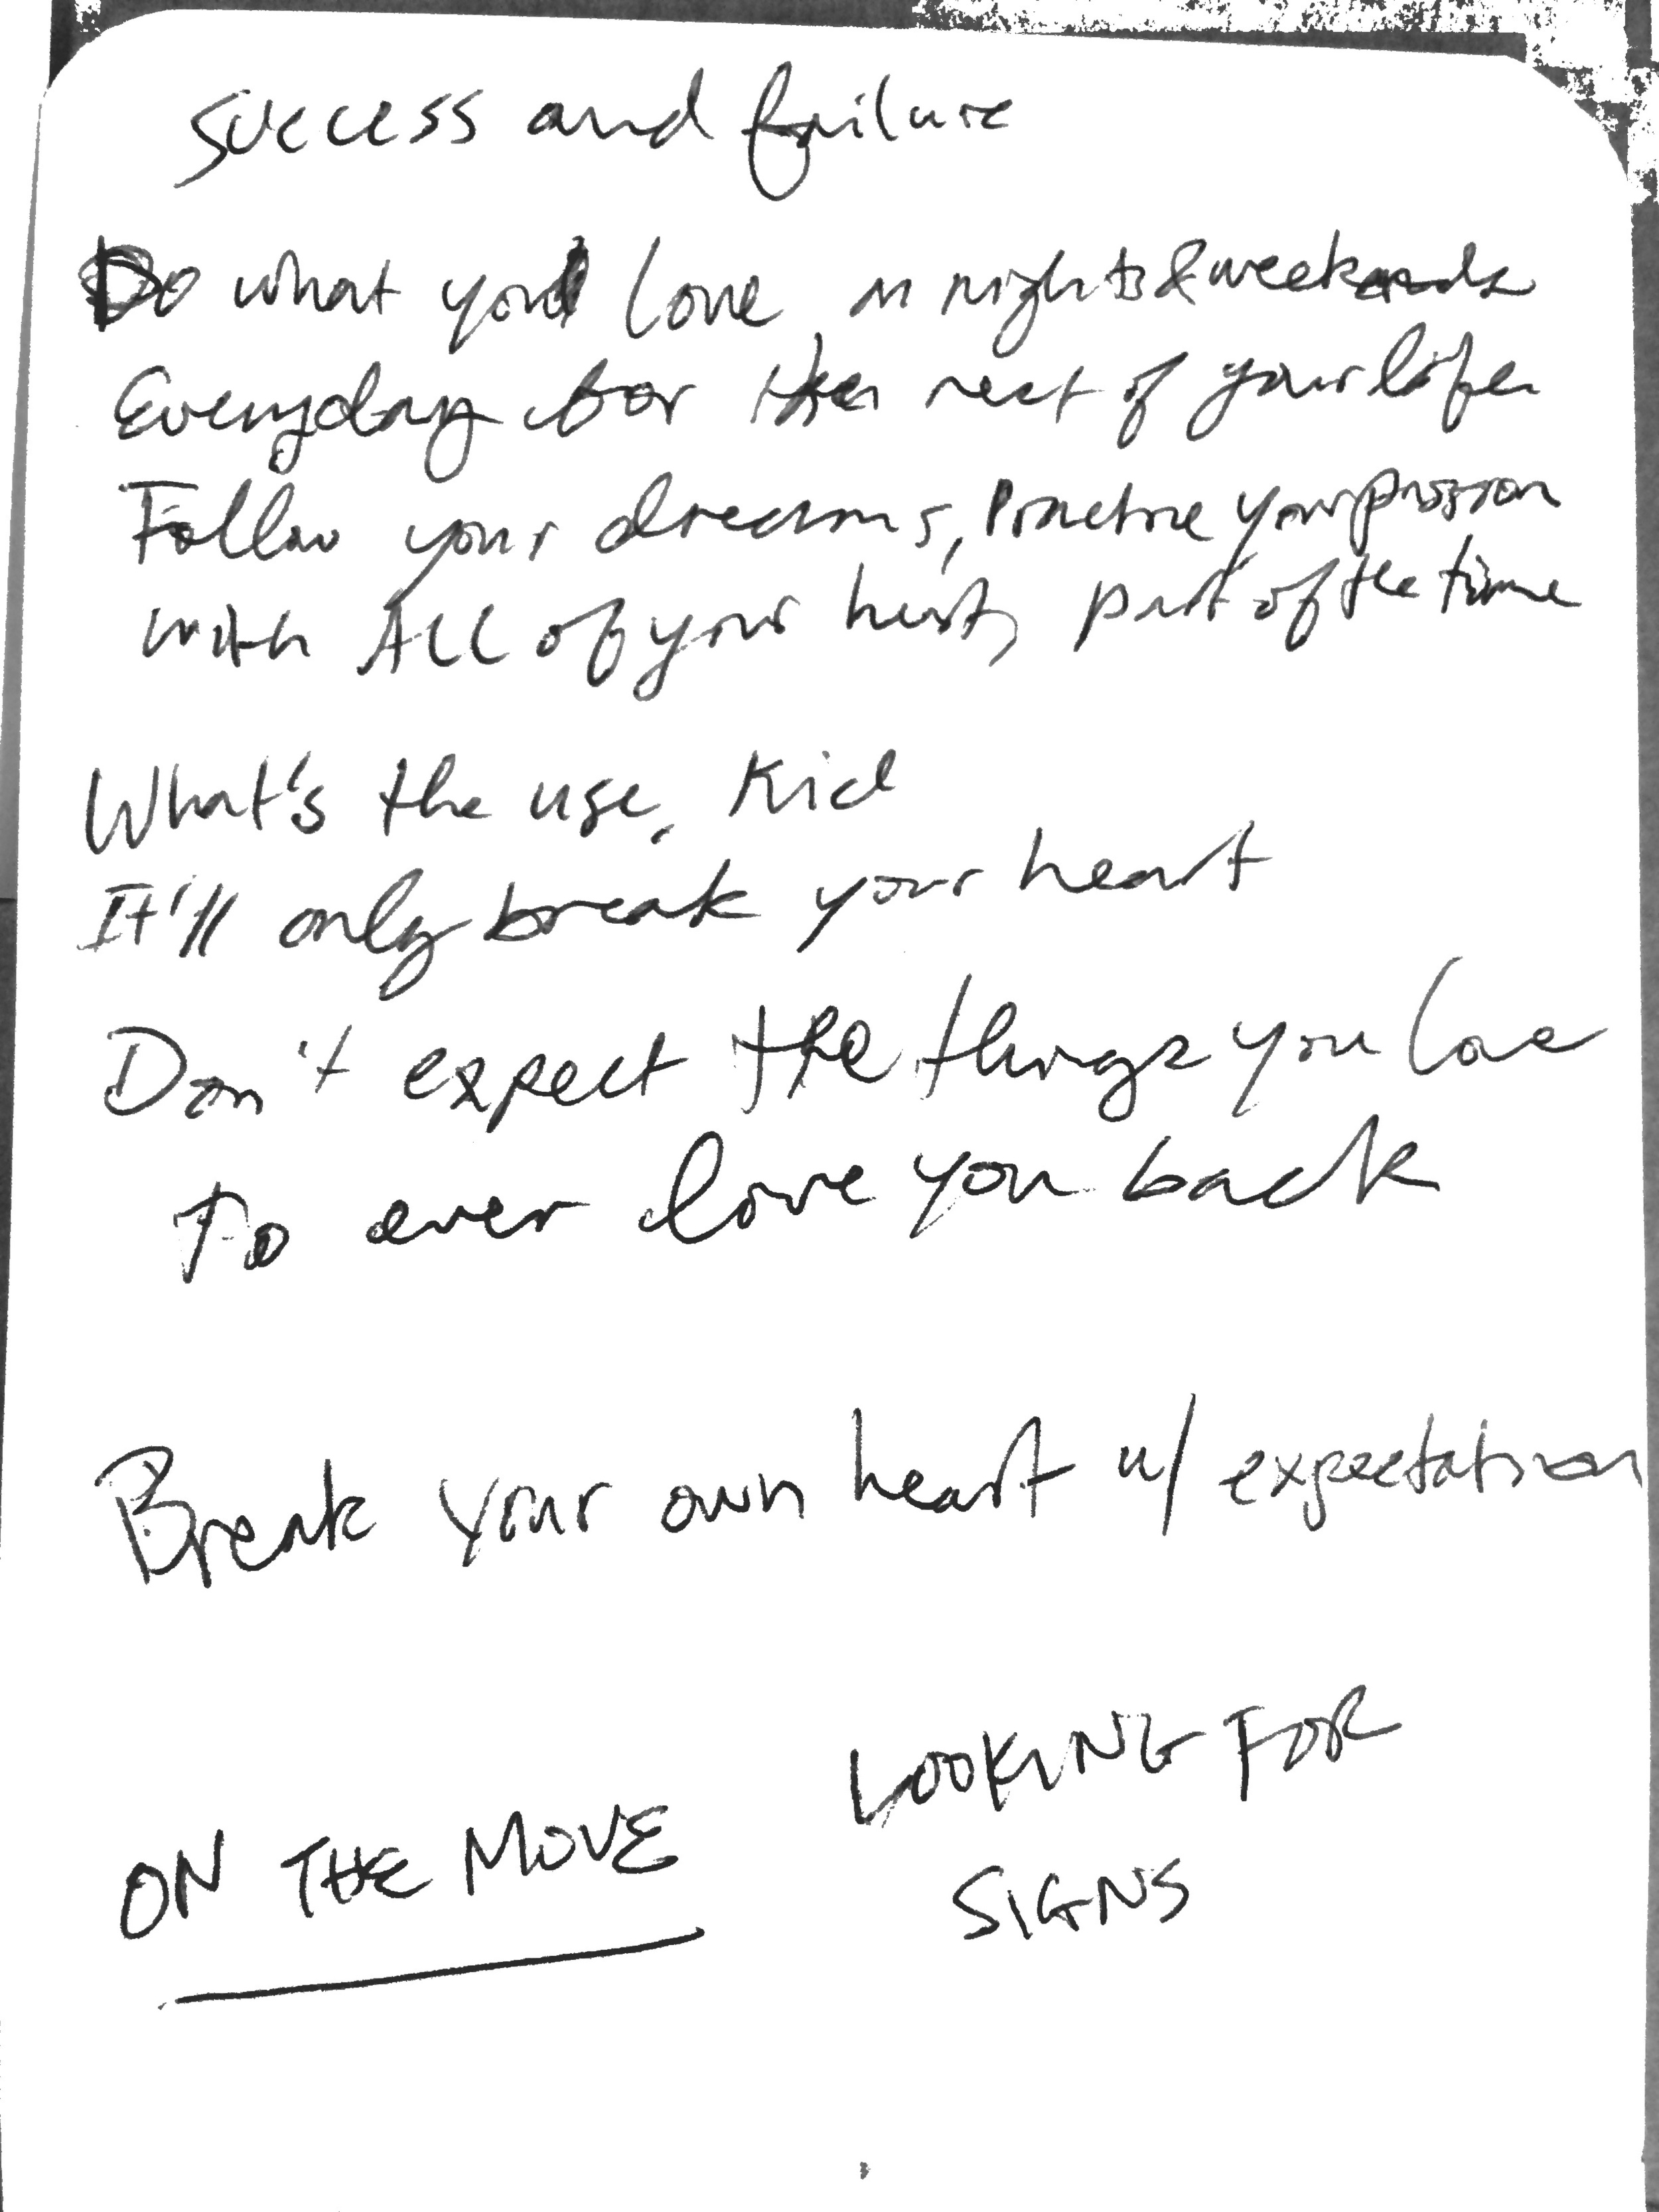 success and failure
Do what you love, on nights & weekends
Everyday for the rest of your life
Follow your dreams, practice your passion
with ALL of your heart, part of the time
What's the use, kid
It'll only break your heart
Don't expect the things you love
To ever love you back
Break your own heart w/ expectation
LOOKING FOR
ON THE MOVE
SIGNS